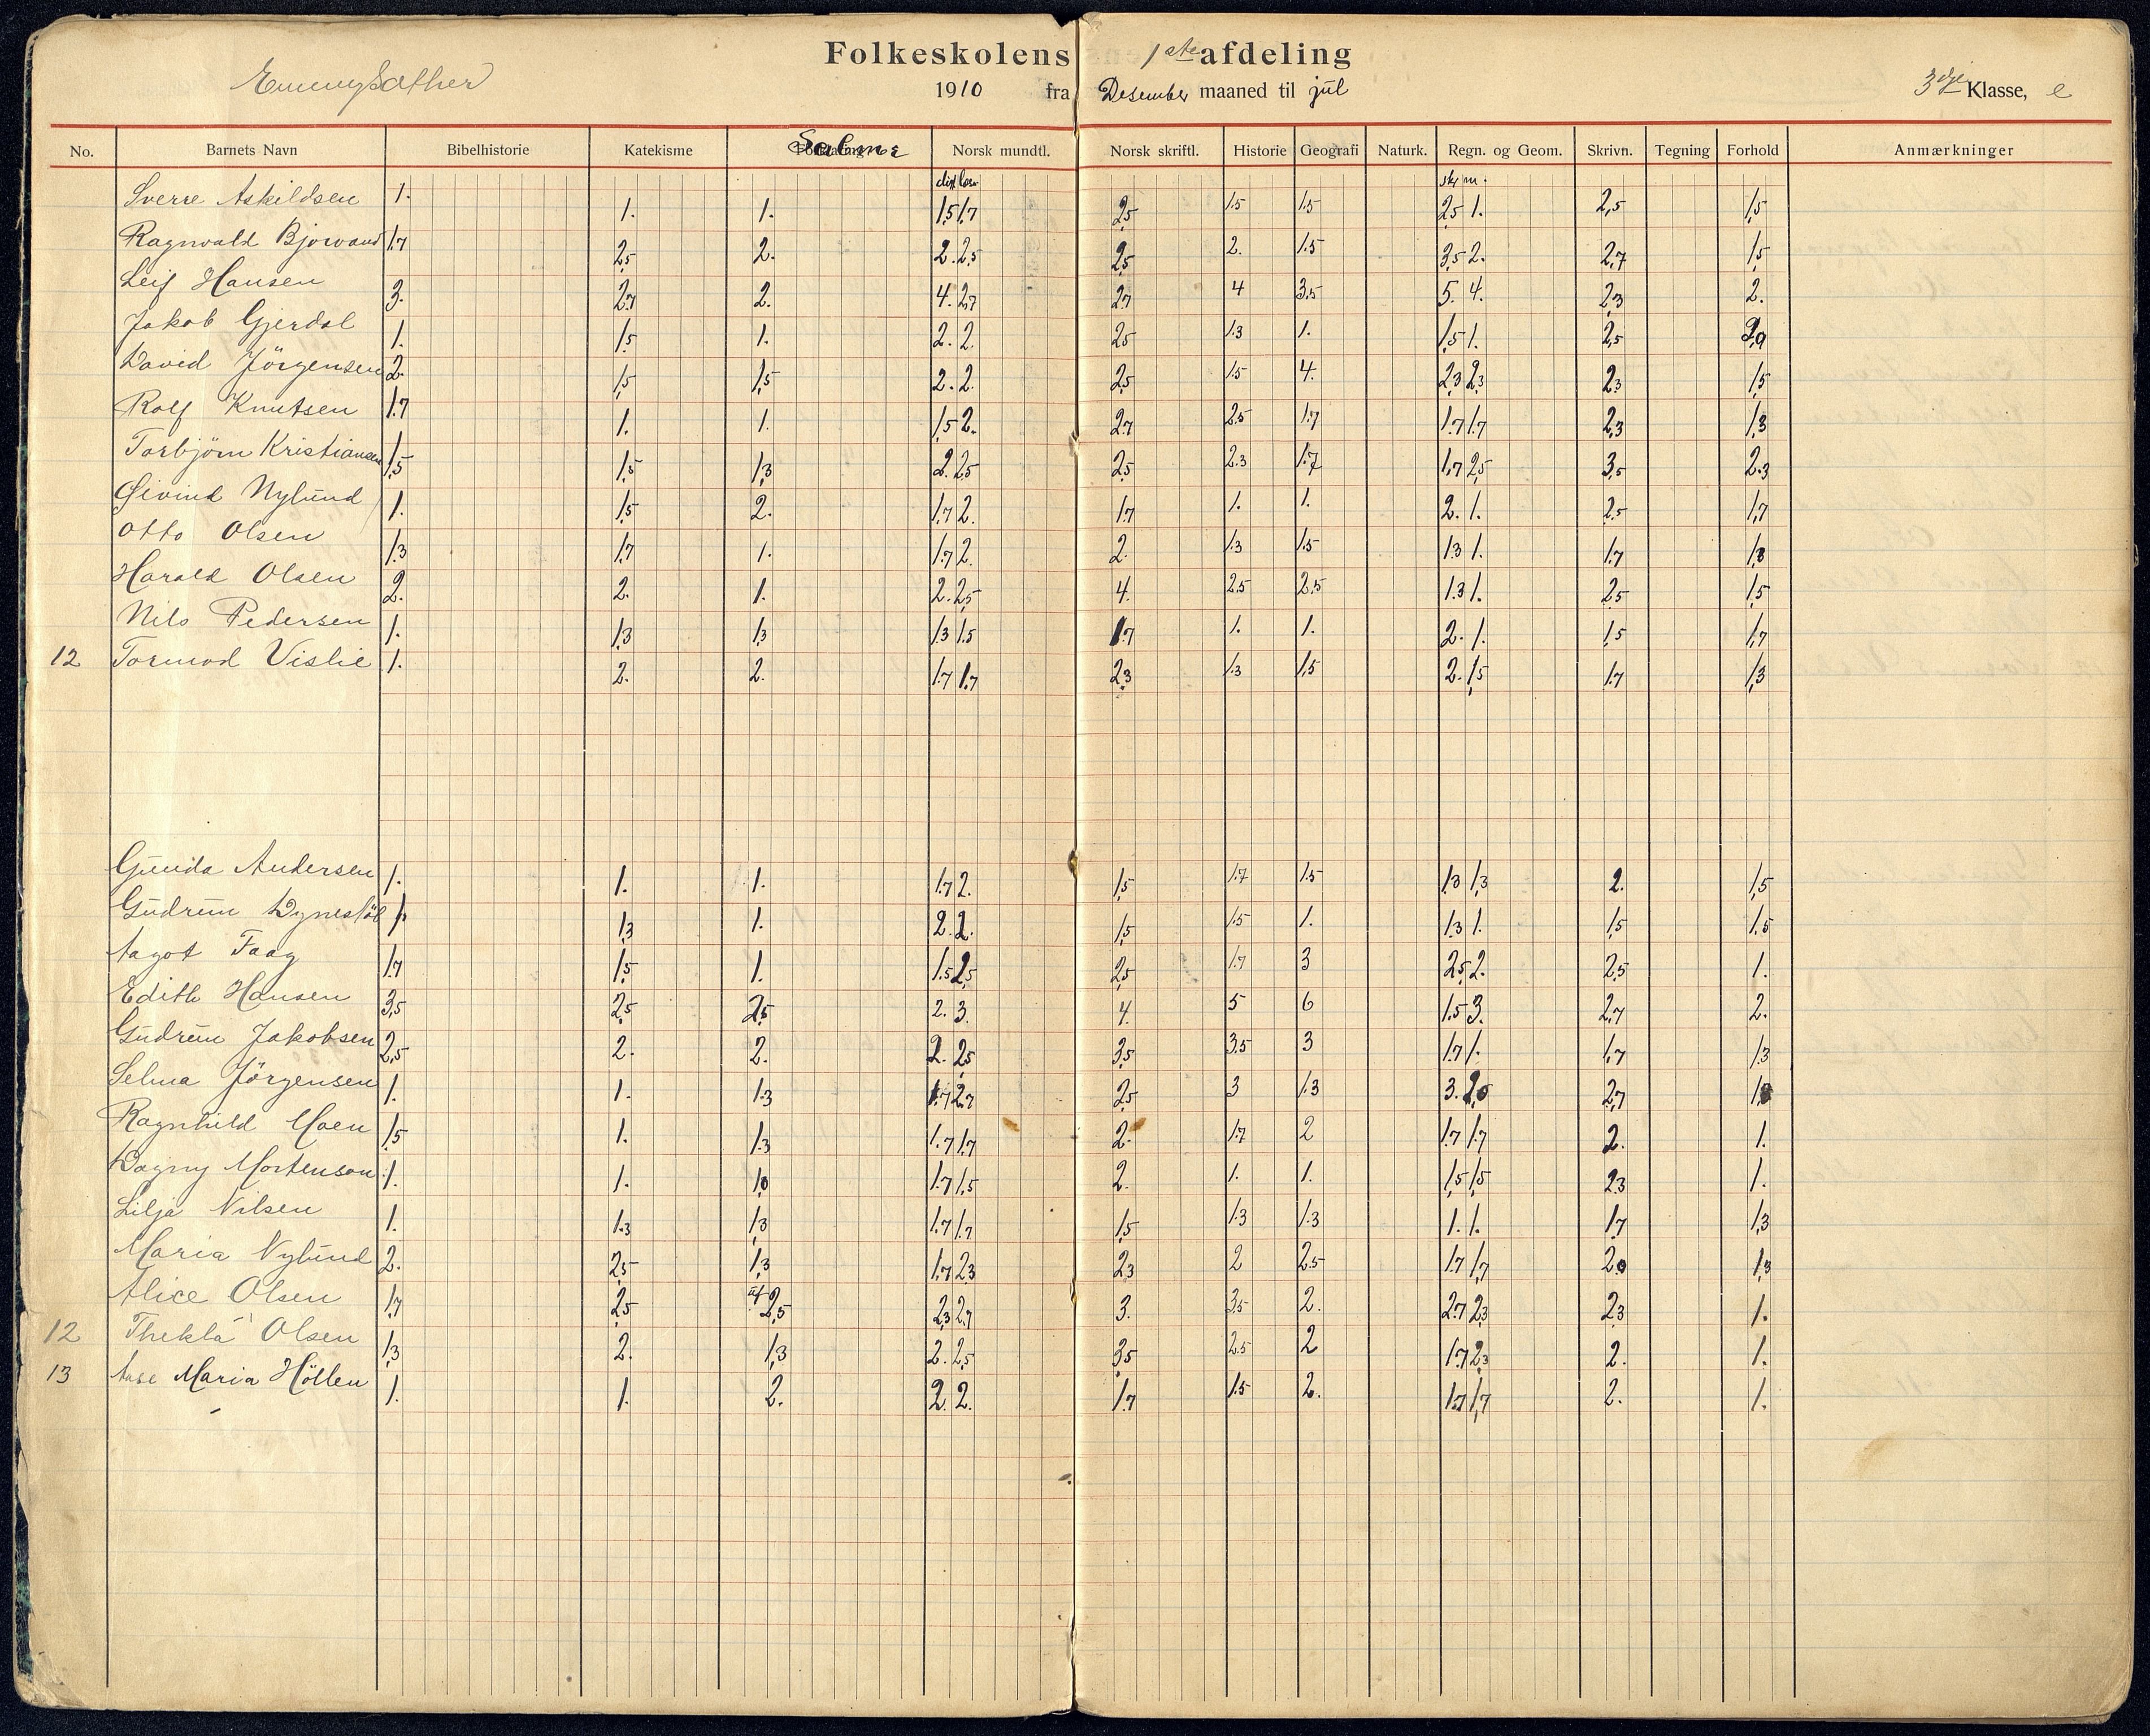 Folkeskolens 1ste afdeling
Emmy Sæther 1910 fra Desember maaned til jul 3dje Klasse, e
No. Barnets Navn Bibelhistorie Katekisme Salme Norsk mundtl. Norsk skriftl. Historie Geografi Naturk. Regn. og Geom. Skrivn. Tegning Forhold Anmærkninger
skr m.
Sverre Askildsen 1. 1. 1. 1,5 1,7 2,5 1.5 1.5 2,5 1. 2,5 1,5
Ragnvald Bjorvand 1,7 2,5 2. 2. 2,5 2,5 2. 1.5 3,5 2. 2,7 1,5
Leif Hansen 3. 2,7 2. 4. 2,7 2,7 4 3,5 5. 4. 2,3 2.
Jakob Gjerdal 1. 1,5 1. 2. 2. 2,5 1.3 1. 1,5 1. 2,5
David Jörgensen 2. 1,5 1,5 2. 2. 2,5 1.5 4. 2,3 2,3 2,3 1,5
Rolf Knutsen 1.7 1. 1. 1,5 2. 2,7 2.5 1.7 1.7 1.7 2,3 1,3
Torbjörn Kristiansen 1,5 1,5 1,3 2. 2,5 2,5 2.3 1.7 1,7 2,5 3,5 2.3
Øivind Nylund 1. 1,5 2. 1,7 2. 1,7 1. 1. 2. 1. 2,5 1,7
Otto Olsen 1.3 1,7 1. 1.7 2. 2. 1.3 1.5 1.3 1. 1.7 1,3
Harald Olsen 2. 2. 1. 2. 2,5 4. 2.5 2.5 1.3 1. 2,5 1,5
Nils Pedersen 1. 1,3 1,3 1.3 1.5 1.7 1. 1. 2. 1. 1,5 1,7
12 Tormod Vislie 1. 2. 2. 1.7 1.7 2,3 1.3 1,5 2. 1,5 1.7 1,3
Gunda Andersen 1. 1. 1. 1.7 2. 1,5 1.7 1.5 1.3 1,3 2. 1,5
Gudrun Dynestöl 1. 1,3 1. 2. 2. 1,5 1.5 1. 1.3 1. 1,5 1.5
Aagot Faag 1.7 1,5 1. 1.5 2,5 2,5 1.7 3 2,5 2. 2,5 1.
Edith Hansen 3,5 2,5 2,5 2. 3. 4. 5 6 1.5 3. 2,7 2.
Gudrun Jakobsen 2,5 2. 2. 2. 2,5 3,5 3.5 3 1.7 1. 1,7 1,3
Selma Jörgensen 1. 1. 1.3 1.7 2,7 2,5 3 1.3 3. 2,7
Ragnhild Moen 1,5 1. 1,3 1.7 1,7 2. 1.7 2 1.7 1.7 2. 1.
Dagny Mortenson 1. 1. 1.7 1,5 2. 1. 1. 1,5 1,5 2,3 1.
Lilja Nilsen 1. 1.3 1,3 1.7 1.7 1,5 1.3 1.3 1. 1. 1,7 1,3
Maria Nylund 2. 2,5 1,3 1,7 2,3 2,3 2 2.5 1.7 1,7 1,3
Alice Olsen 1,7 2,5 2,5 2,3 2,7 3. 3.5 2. 2.7 2,3 2,3 1.
12 Thekla Olsen 1,3 2. 1,3 2. 2,5 3,5 2.5 2 1.7 2,3 2. 1.
13 Aase Maria Höllen 1. 1. 2. 2. 2. 1.7 1.5 2. 1.7 1,7 2. 1.